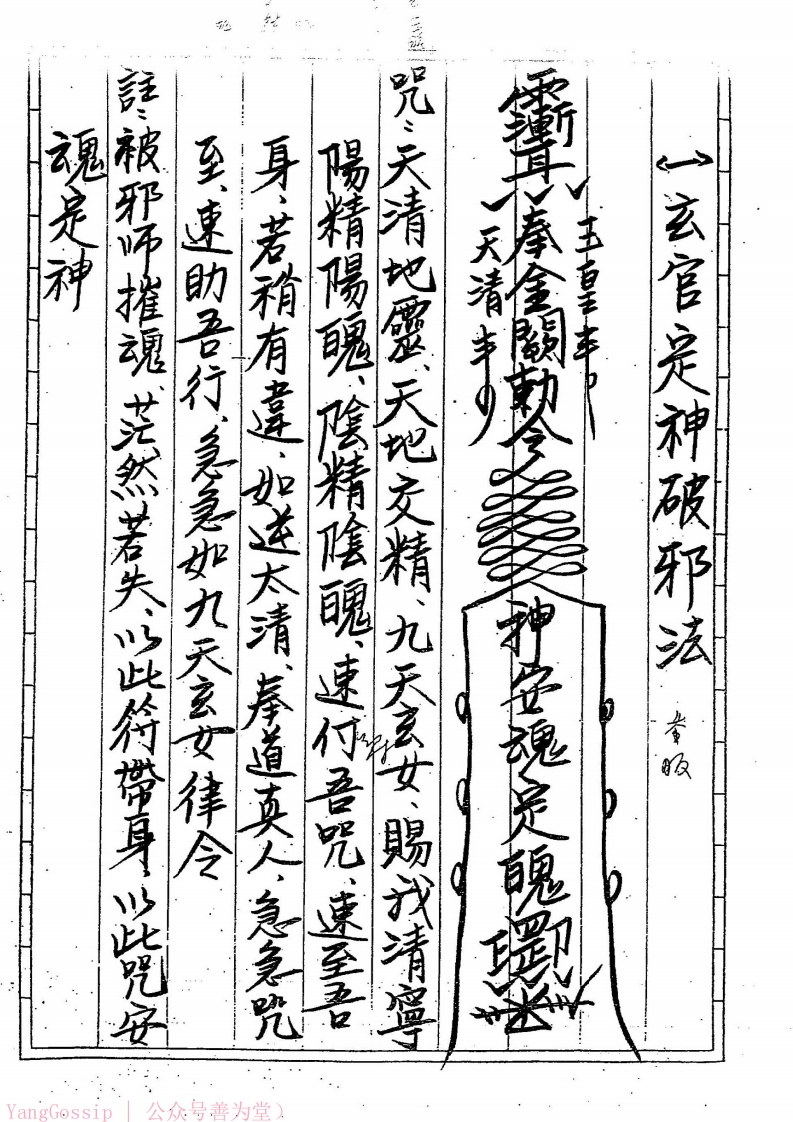 ㈠玄官定神破邪法
玉皇
奉金闕勅令
天清
神安魂定魄罡
咒:天清地靈、天地交精、九天玄女、賜我清寧
陽精陽魄、陰精陰魄、速付吾咒、速至吾
身、若稍有違、如逆太清、奉道真人、急急咒
至、速助吾行、急急如九天玄女律令
註:被邪师摧魂、茫然若失、以此符帶身、以此咒安
魂定神
YangGossip | 公众号善为堂）